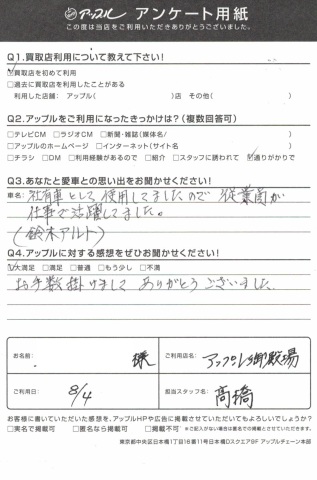 アップル アンケート用紙
この度は当店をご利用いただきありがとうございました。
Q1.買取店利用について教えて下さい!
☑買取店を初めて利用
□過去に買取店を利用したことがある
利用した店舗: アップル( )店 その他( )
Q2.アップルをご利用になったきっかけは?(複数回答可)
□テレビCM □ラジオCM □新聞・雑誌(媒体名/ )
□アップルのホームページ □インターネット(サイト名 )
□チラシ □DM □利用経験があるので □紹介 □スタッフに誘われて ☑通りがかりで
Q3.あなたと愛車との思い出をお聞かせください!
車名: 社有車として使用してましたので 従業員が
仕事で活躍してました。
(鈴木アルト)
Q4.アップルに対する感想をぜひお聞かせください!
☑大満足 □満足 □普通 □もう少し □不満
お手数掛けまして ありがとうございました
お名前: 様 ご利用店名: アップル御殿場
ご利用日: 8/4 担当スタッフ名: 高橋
お客様に書いていただいた感想を、アップルHPや広告に掲載させていただいてもよろしいでしょうか?
□実名で掲載可 □匿名なら掲載可 □掲載不可 ※ご記入がない場合は匿名での掲載とさせていただきます。
東京都中央区日本橋1丁目16番11号日本橋Dスクエア9F アップルチェーン本部